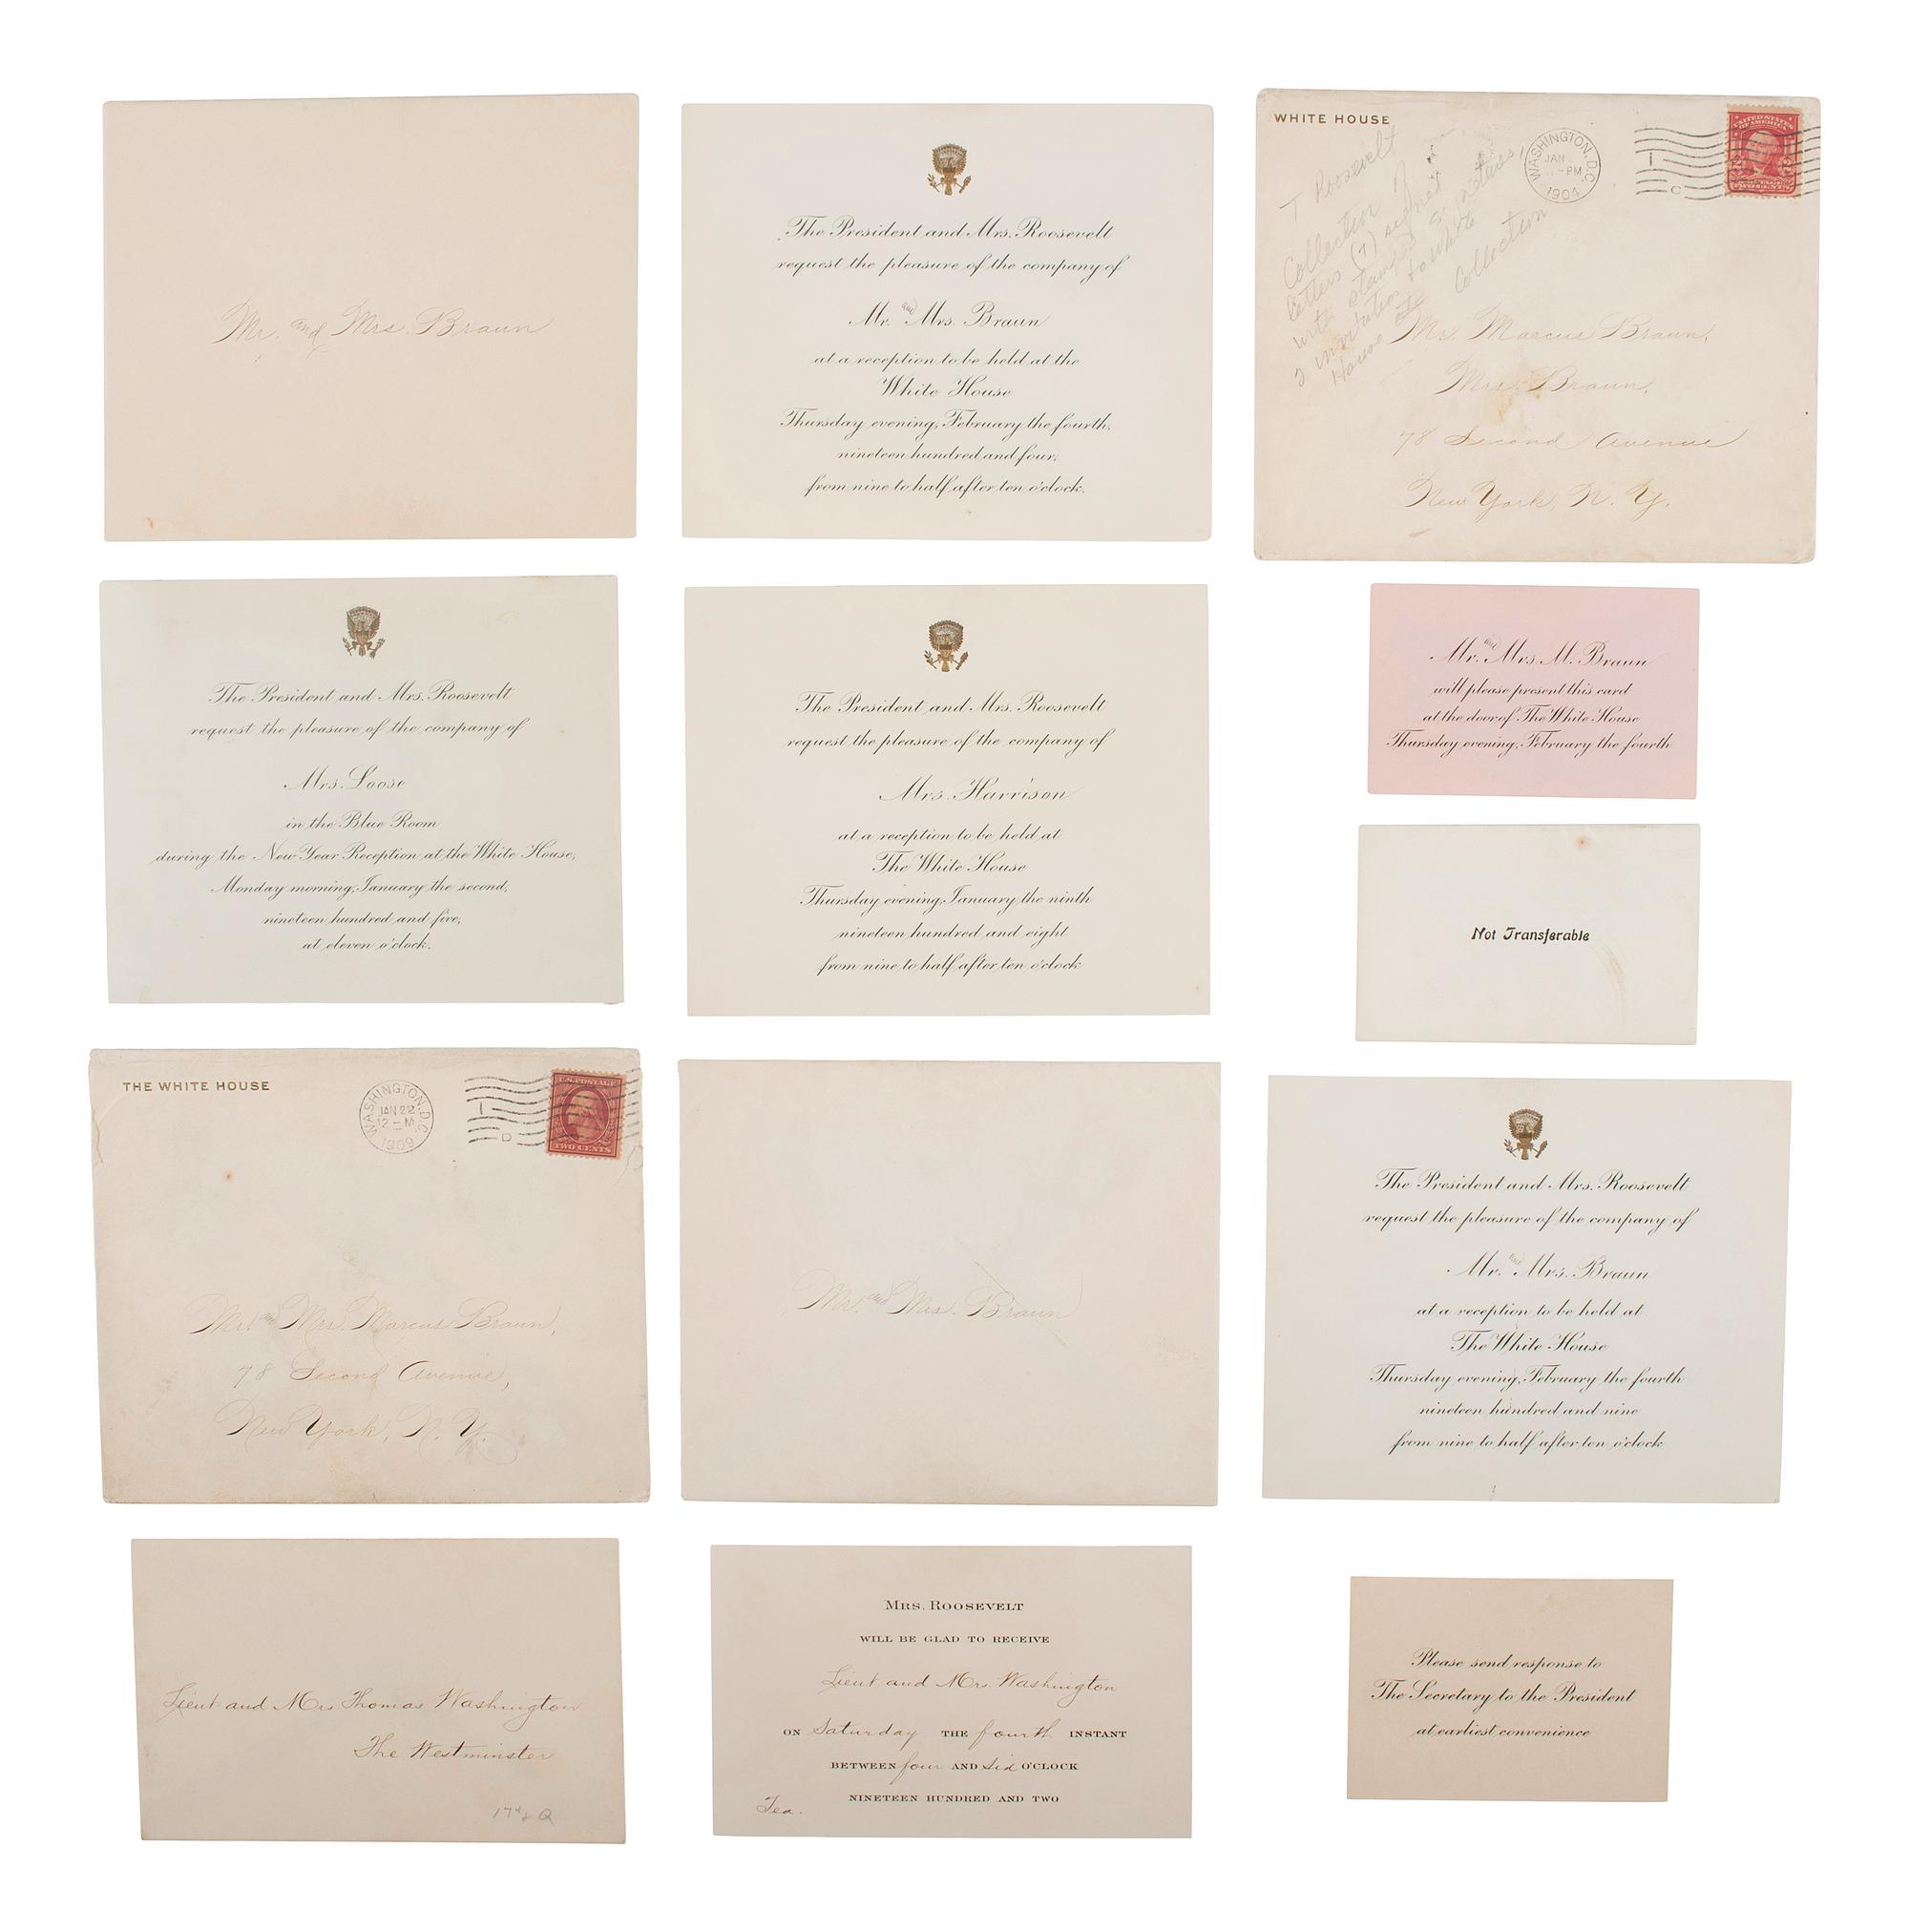 Mr. and Mrs. Braun
The President and Mrs. Roosevelt
request the pleasure of the company of
Mr. and Mrs. Braun
at a reception to be held at the
White House
Thursday evening, February the fourth,
nineteen hundred and four,
from nine to half after ten o'clock.
WHITE HOUSE
WASHINGTON, D.C.
JAN
PM
1904
UNITED STATES
OF AMERICA
TWO CENTS
T Roosevelt
Collection
letters (7) signed
with stamped
2 invitations to White
House
Collection
Mr. Marcus Braun,
Mrs. Braun,
78 Second Avenue
New York, N. Y.
The President and Mrs. Roosevelt
request the pleasure of the company of
Mrs. Loose
in the Blue Room
during the New Year Reception at the White House,
Monday morning, January the second,
nineteen hundred and five,
at eleven o'clock.
The President and Mrs. Roosevelt
request the pleasure of the company of
Mrs. Harrison
at a reception to be held at
The White House
Thursday evening, January the ninth
nineteen hundred and eight
from nine to half after ten o'clock
Mr. and Mrs. M. Braun
will please present this card
at the door of The White House
Thursday evening, February the fourth
Not Transferable
THE WHITE HOUSE
WASHINGTON, D.C.
JAN 22
12-M
1909
D
U.S. POSTAGE
TWO CENTS
Mr. and Mrs. Marcus Braun,
78 Second Avenue,
New York, N. Y.
Mr. and Mrs. Braun
The President and Mrs. Roosevelt
request the pleasure of the company of
Mr. and Mrs. Braun
at a reception to be held at
The White House
Thursday evening, February the fourth
nineteen hundred and nine
from nine to half after ten o'clock
Lieut and Mrs Thomas Washington
The Westminster
MRS. ROOSEVELT
WILL BE GLAD TO RECEIVE
Lieut and Mrs. Washington
ON Saturday THE fourth INSTANT
BETWEEN four AND six O'CLOCK
NINETEEN HUNDRED AND TWO
Tea.
Please send response to
The Secretary to the President
at earliest convenience